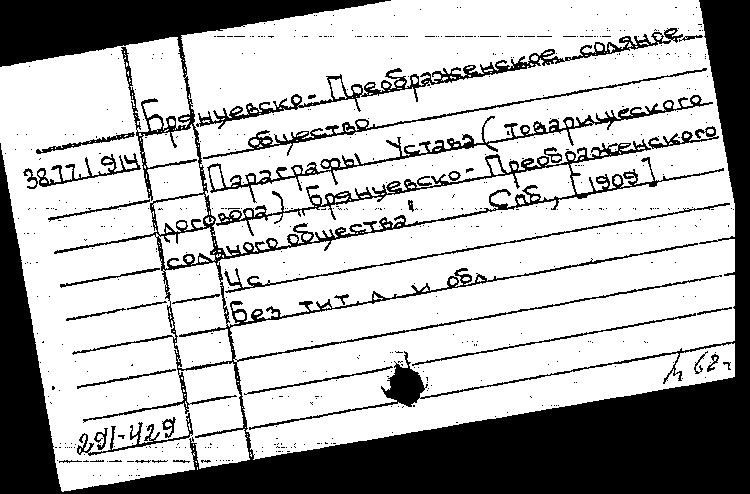 Брянцевско-Преображенское соляное
общество.
38.77.1.914
Параграфы Устава (Товарищеского
договора) „Брянцевско-Преображенского
соляного общества".  Спб., [1909].
4 с.
Без тит. л. и обл.
291-429
62